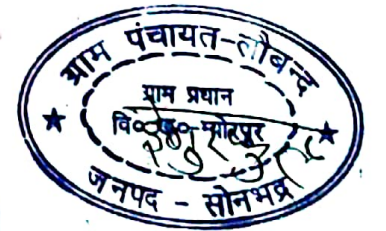 ग्राम पंचायत-लौबन्द
ग्राम प्रधान
वि०ख०-म्योरपुर
जनपद - सोनभद्र